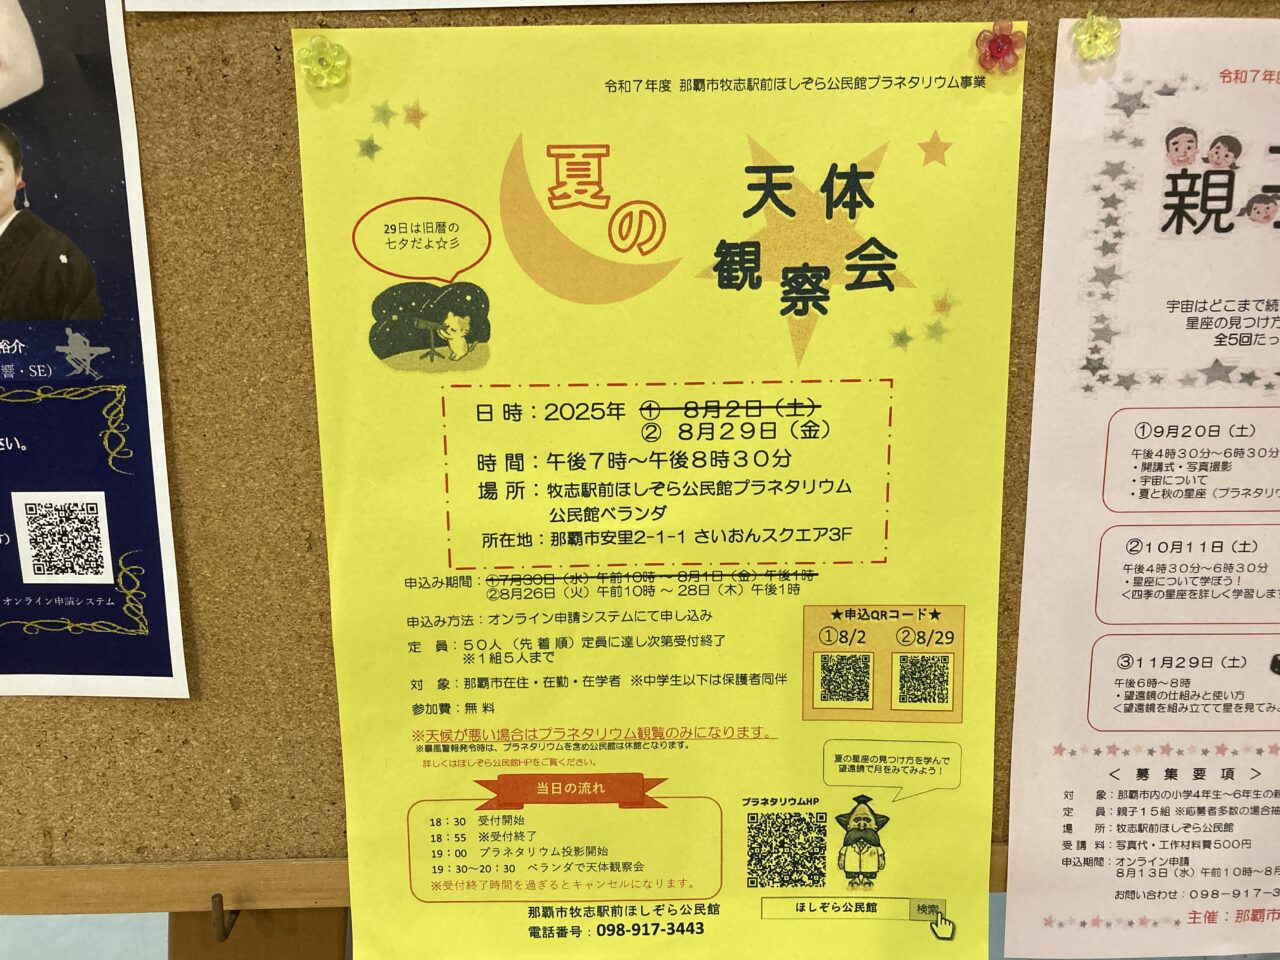 令和7年度 那覇市牧志駅前ほしぞら公民館プラネタリウム事業
夏の
天体
観察会
29日は旧暦の
七夕だよ☆彡
日時：2025年 ① 8月2日（土）
② 8月29日（金）
時間：午後7時～午後8時30分
場所：牧志駅前ほしぞら公民館プラネタリウム
公民館ベランダ
所在地：那覇市安里2-1-1 さいおんスクエア3F
申込み期間：①7月30日（水）午前10時～8月1日（金）午後1時
②8月26日（火）午前10時～28日（木）午後1時
申込み方法：オンライン申請システムにて申し込み
定 員：50人（先着順）定員に達し次第受付終了
※1組5人まで
対 象：那覇市在住・在勤・在学者 ※中学生以下は保護者同伴
参加費：無料
★申込QRコード★
①8/2 ②8/29
※天候が悪い場合はプラネタリウム観覧のみになります。
※暴風警報発令時は、プラネタリウムを含め公民館は休館となります。
詳しくはほしぞら公民館HPをご覧ください。
夏の星座の見つけ方を学んで
望遠鏡で月をみてみよう！
当日の流れ
18：30 受付開始
18：55 ※受付終了
19：00 プラネタリウム投影開始
19：30～20：30 ベランダで天体観察会
※受付終了時間を過ぎるとキャンセルになります。
プラネタリウムHP
ほしぞら公民館 検索
那覇市牧志駅前ほしぞら公民館
電話番号：098-917-3443
裕介
響・SE）
さい。
オンライン申請システム
令和7年度
親
宇宙はどこまで続
星座の見つけ方
全5回たっ
①9月20日（土）
午後4時30分～6時30分
・開講式・写真撮影
・宇宙について
・夏と秋の星座（プラネタリウ
②10月11日（土）
午後4時30分～6時30分
・星座について学ぼう！
＜四季の星座を詳しく学習しま
③11月29日（土）
午後6時～8時
・望遠鏡の仕組みと使い方
＜望遠鏡を組み立てて星を見てみよ
＜募集要項＞
対 象：那覇市内の小学4年生～6年生の親
定 員：親子15組 ※応募者多数の場合抽
場 所：牧志駅前ほしぞら公民館
受講料：写真代・工作材料費500円
申込期間：オンライン申請
8月13日（水）午前10時～8月
お問い合わせ：098-917-3
主催：那覇市